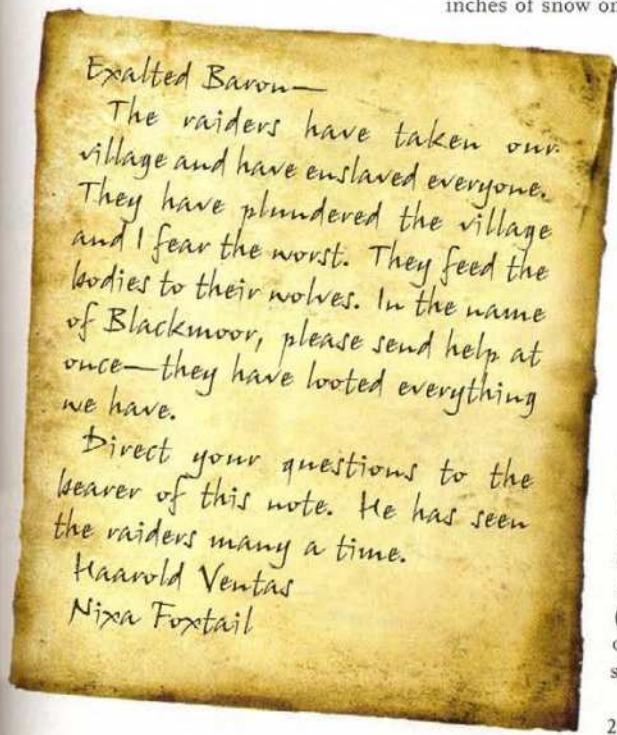 inches of snow on
Exalted Baron—
The raiders have taken our
village and have enslaved everyone.
They have plundered the village
and I fear the worst. They feed the
bodies to their wolves. In the name
of Blackmoor, please send help at
once—they have looted everything
we have.
Direct your questions to the
bearer of this note. He has seen
the raiders many a time.
Haarold Ventas
Nixa Foxtail
(
s
2